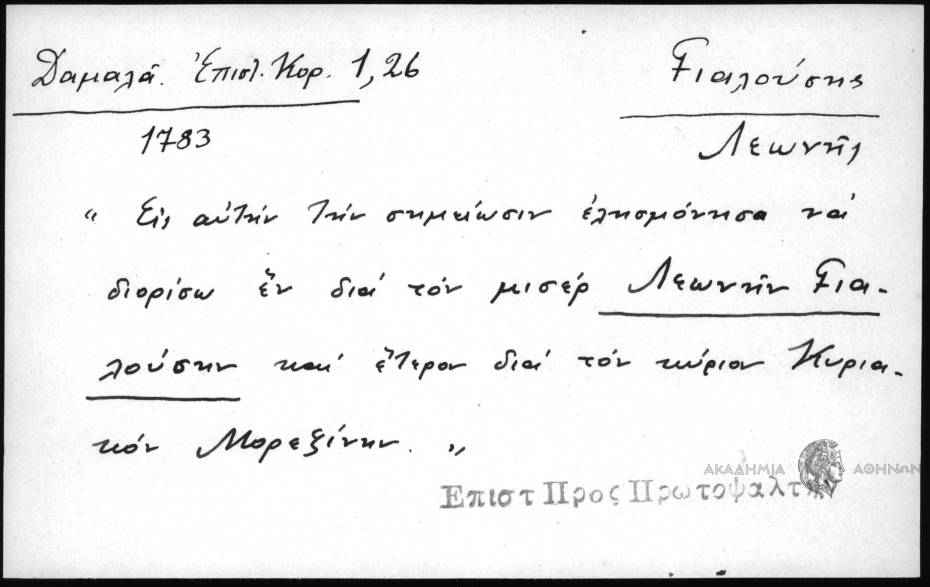 Δαμαλᾶ. Ἐπιστ. Κορ. 1,26
Γιαλούσης
1783
Λεωνῆς
“ Εἰς αὐτὴν τὴν σημείωσιν ἐλησμόνησα νά
διορίσω ἕν διά τόν μισέρ Λεωνῆν Για-
λούσην καί ἕτερον διά τόν κύριον Κυρια-
κόν Μορεξίνην. „
ΑΚΑΔΗΜΙΑ ΑΘΗΝΩΝ
Επιστ Προς Πρωτοψαλτ